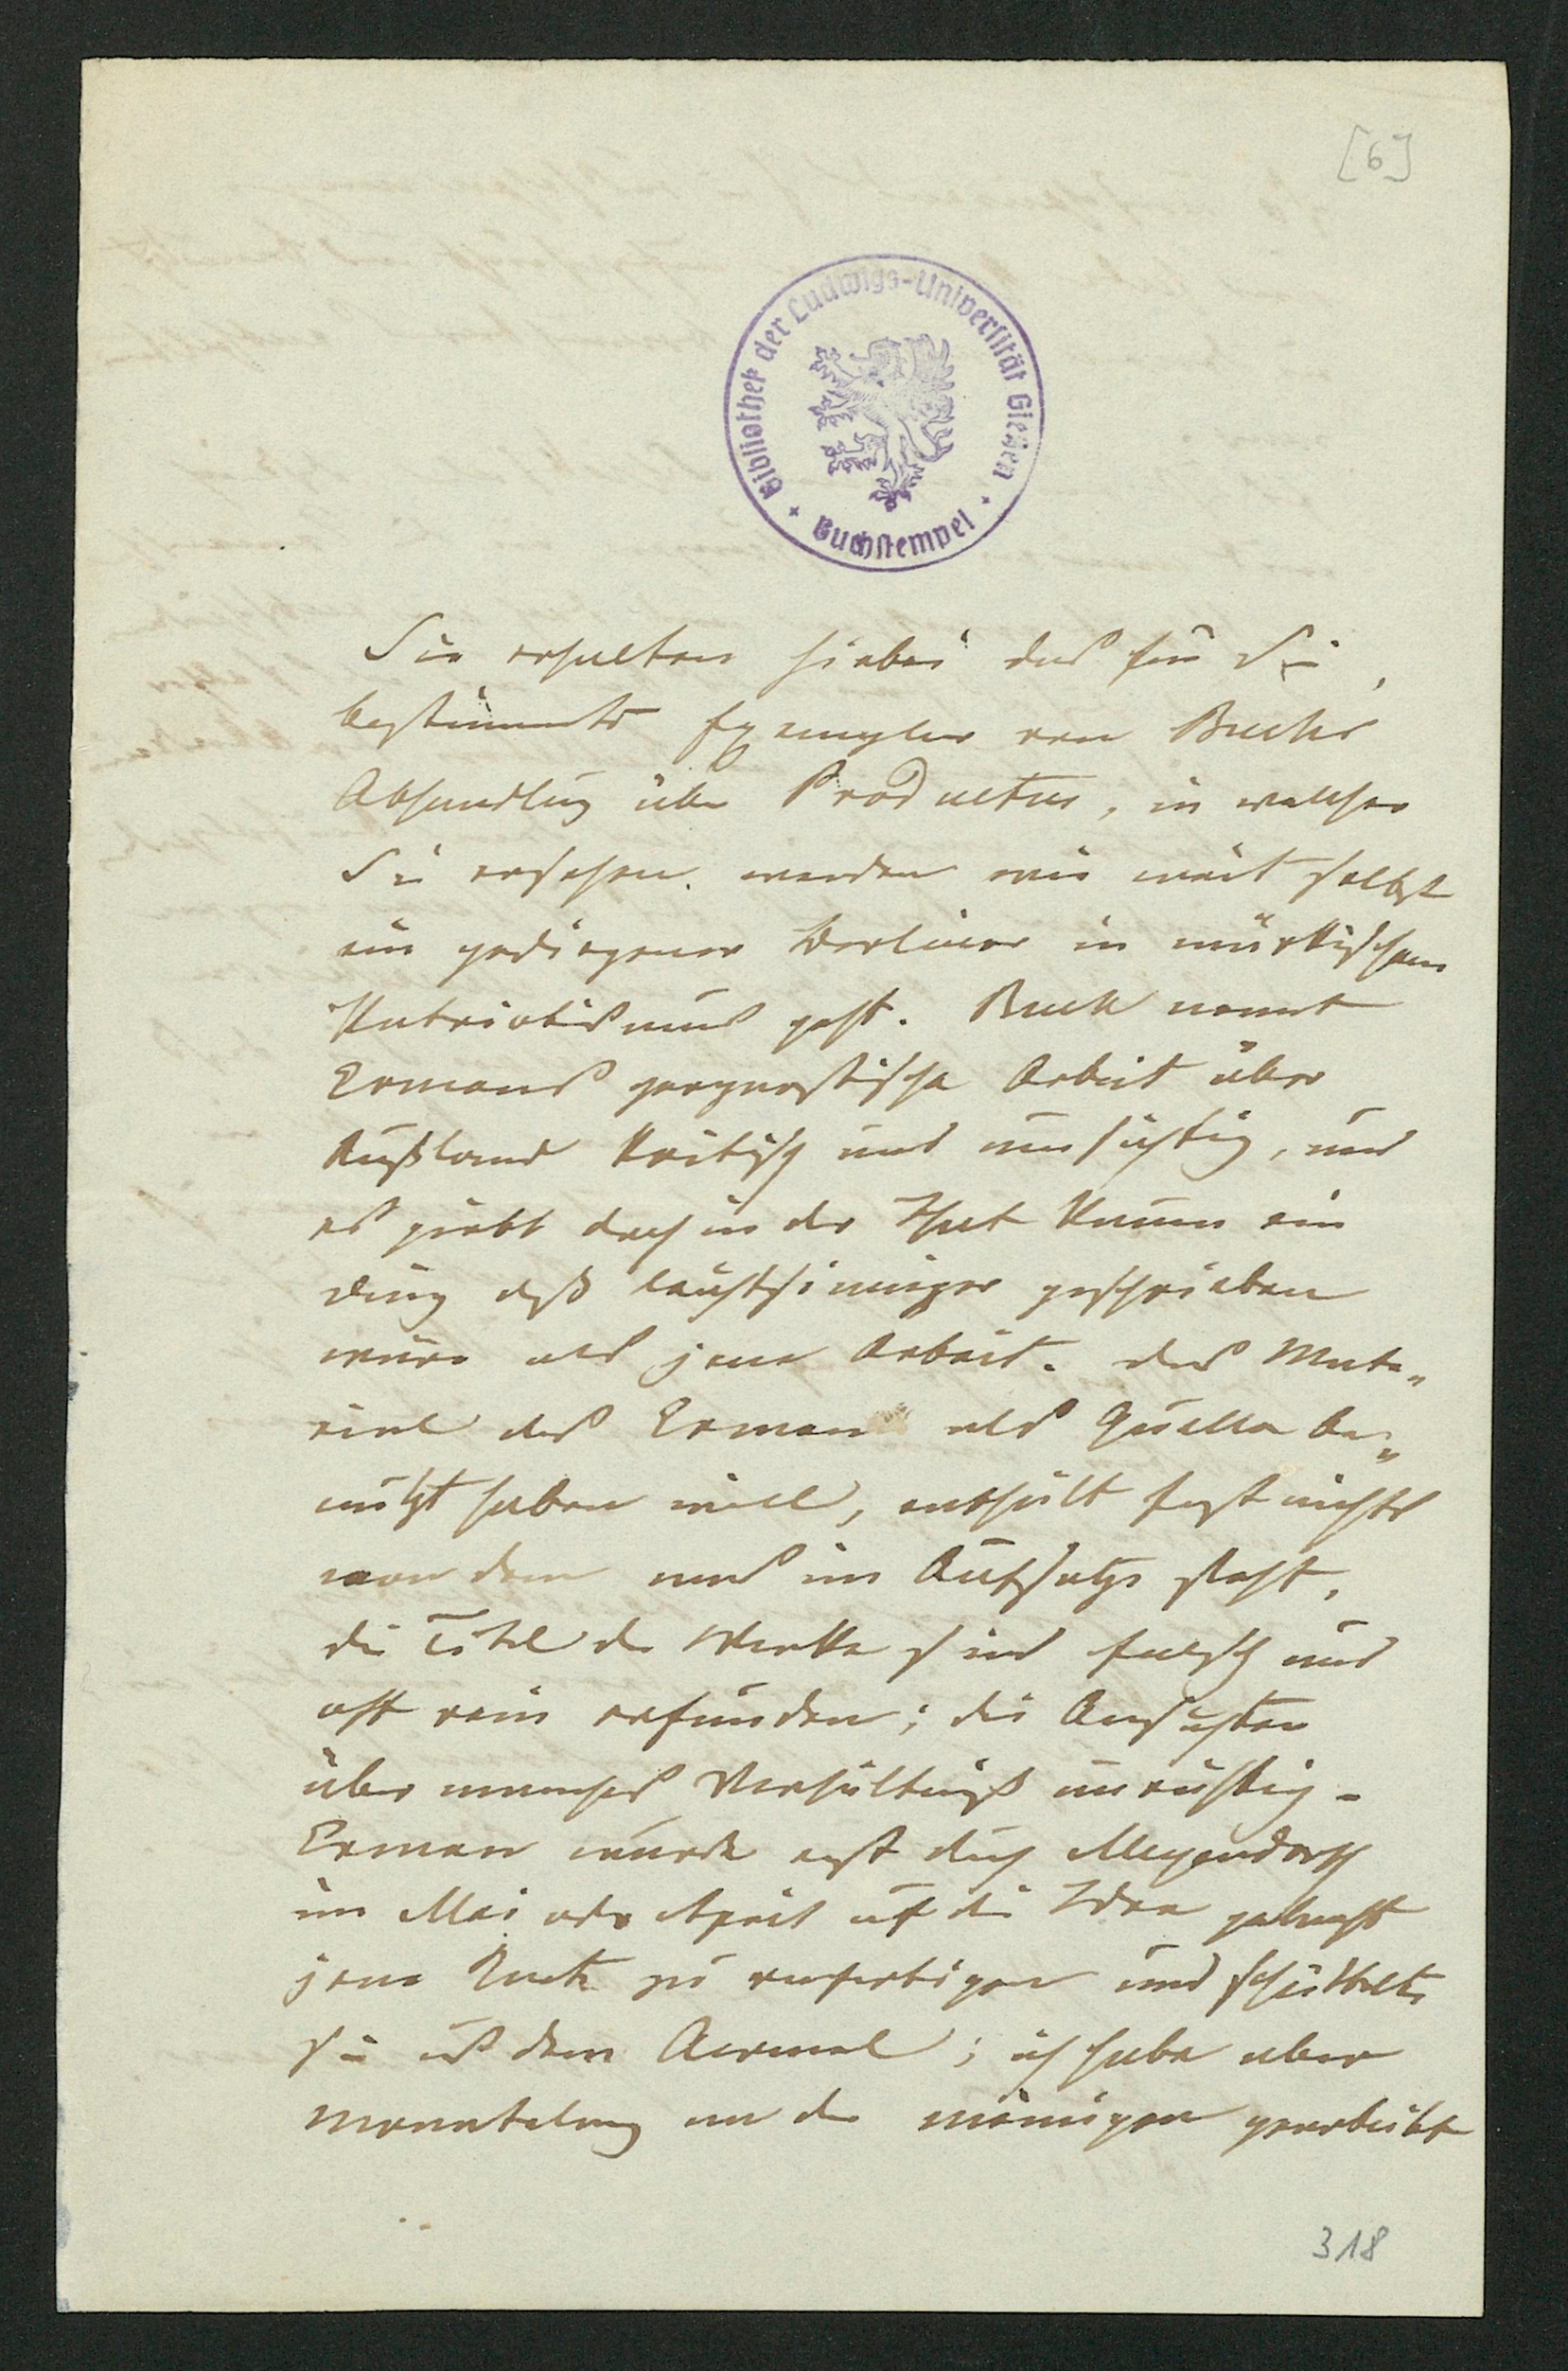 [6]
Bibliothek der Ludwigs-Universität Gießen
Buchstempel
Sie erhalten hiebei das für Sie
bestimmte Exemplar von Buchs
Abhandlung über Productus, in welcher
Sie ersehen werden wie weit selbst
ein gediegener Berliner in märkischem
Patriotismus geht. Buch nennt
Ermans geognostische Arbeit über
Rußland kritisch und umsichtig, und
es giebt doch in der That kaum ein
Ding daß leichtsinniger geschrieben
wäre als jene Arbeit. Das Mate„
rial das Erman als Quelle be„
nützt haben will, enthält fast nichts
von dem was im Aufsatze steht,
die Titel der Werke sind falsch und
oft rein erfunden; die Ansichten
über manches Verhältniß unrichtig.
Erman wurde erst durch Meyendorff
im Mai oder April auf die Idee gebracht
jene Karte zu verfertigen und schüttelte
sie aus dem Aermel; ich habe aber
monatelang an der meinigen gearbeitet
318